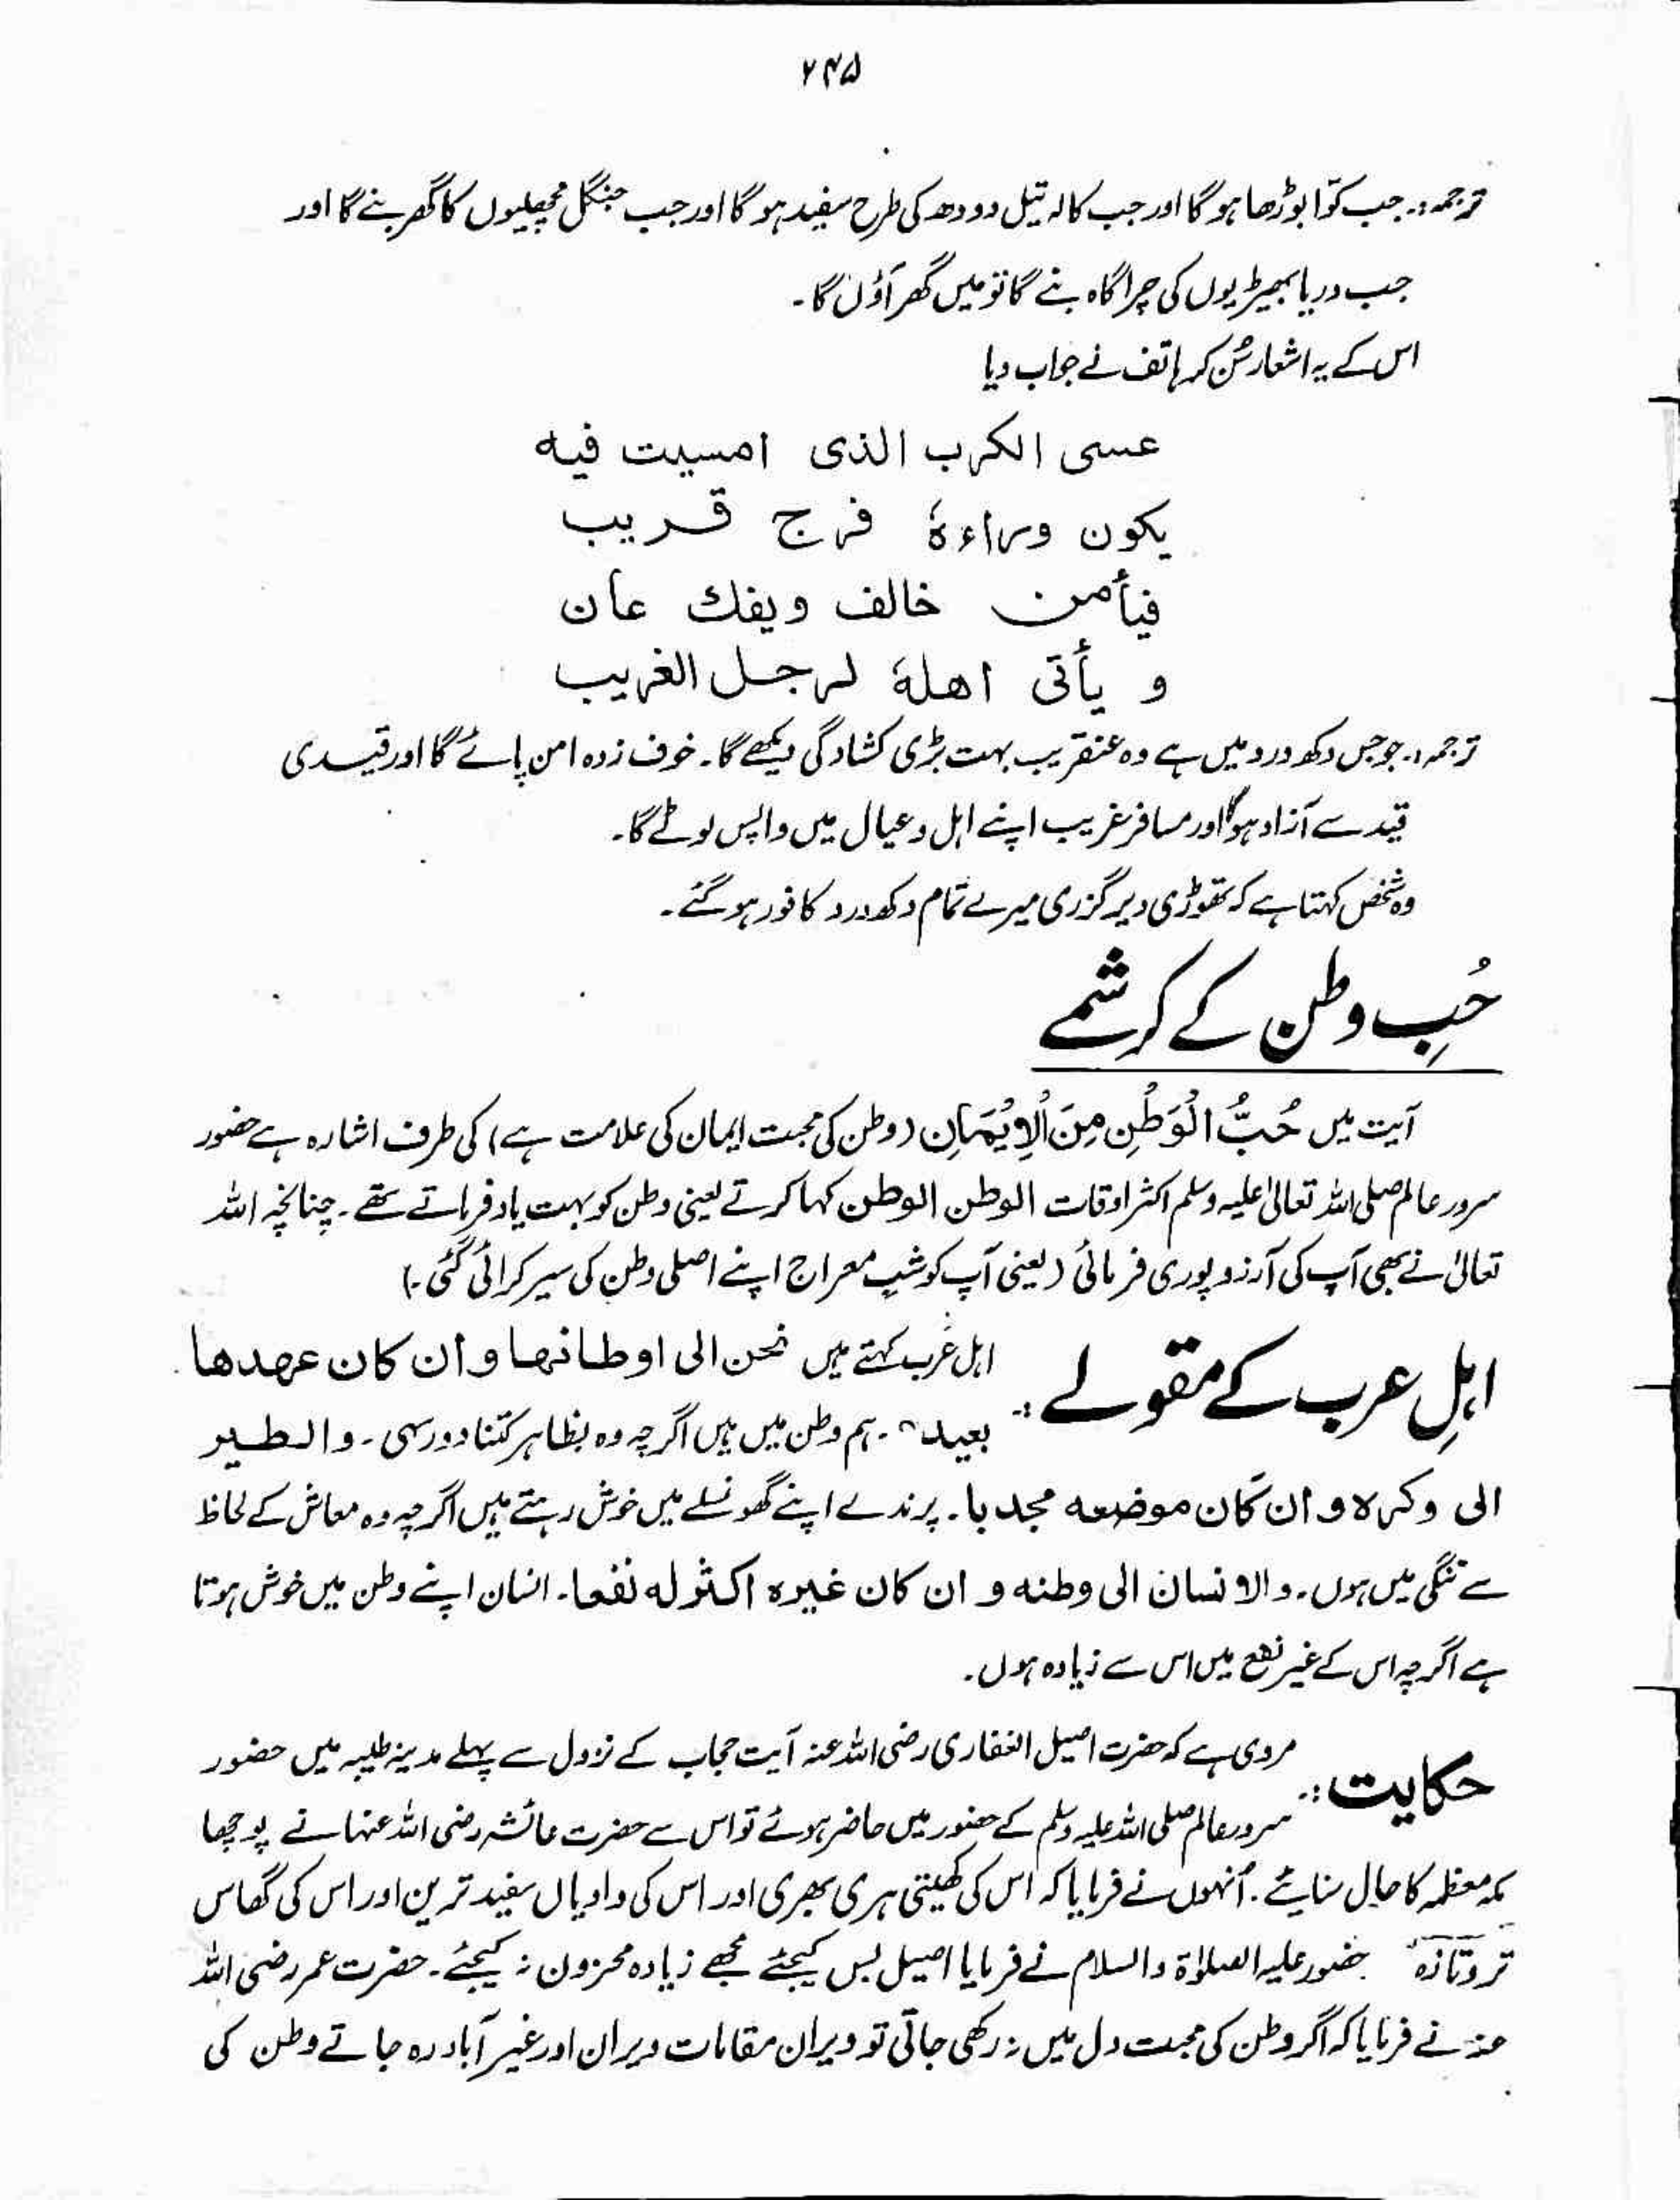 ۷۴۵
ترجمہ:۔ جب کوّا بوڑھا ہو گا اور جب کالہ تیل دودھ کی طرح سفید ہو گا اور جب جنگل مچھلیوں کا گھر بنے گا اور
جب دریا بھیڑیوں کی چراگاہ بنے گا تو میں گھر آؤں گا۔
اس کے یہ اشعار سُن کر ہاتف نے جواب دیا
عسی الکرب الذی امسیت فیہ
یکون وراءہٗ فرج قریب
فیأمن خالف ویفك عان
و یأتی اھلہٗ لرجل الغریب
ترجمہ:۔ جو جس دکھ درد میں ہے وہ عنقریب بہت بڑی کشادگی دیکھے گا۔ خوف زدہ امن پائے گا اور قیدی
قید سے آزاد ہوگا اور مسافر غریب اپنے اہل و عیال میں واپس لوٹے گا۔
وہ شخص کہتا ہے کہ تھوڑی دیر گزری میرے تمام دکھ درد کافور ہو گئے۔
حُبِ وطن کے کرشمے
آیت میں حُبُّ الْوَطَنِ مِنَ الْاِیْمَانِ (وطن کی محبت ایمان کی علامت ہے) کی طرف اشارہ ہے حضور
سرور عالم صلی اللہ تعالیٰ علیہ وسلم اکثر اوقات الوطن الوطن کہا کرتے یعنی وطن کو بہت یاد فرماتے تھے۔ چنانچہ اللہ
تعالیٰ نے بھی آپ کی آرزو پوری فرمائی (یعنی آپ کو شبِ معراج اپنے اصلی وطن کی سیر کرائی گئی۔)
اہلِ عرب کے مقولے :۔ اہل عرب کہتے ہیں نحن الی اوطانھا وان کان عھدھا
بعید۔ ہم وطن میں ہیں اگرچہ وہ بظاہر کتنا دور سہی۔ والطیر
الی وکرہ و ان کان موضعہ مجدبا۔ پرندے اپنے گھونسلے میں خوش رہتے ہیں اگرچہ وہ معاش کے لحاظ
سے تنگی میں ہوں۔ والانسان الی وطنہ و ان کان غیرہ اکثر لہ نفعا۔ انسان اپنے وطن میں خوش ہوتا
ہے اگرچہ اس کے غیر نفع میں اس سے زیادہ ہوں۔
حکایت :۔ مروی ہے کہ حضرت اصیل الغفاری رضی اللہ عنہ آیت حجاب کے نزول سے پہلے مدینہ طیبہ میں حضور
سرور عالم صلی اللہ علیہ وسلم کے حضور میں حاضر ہوئے تو اس سے حضرت عائشہ رضی اللہ عنہا نے پوچھا
مکہ معظمہ کا حال سنائیے۔ اُنہوں نے فرمایا کہ اس کی کھیتی ہری بھری اور اس کی وادیاں سفید ترین اور اس کی گھاس
تر و تازہ حضور علیہ الصلوٰۃ والسلام نے فرمایا اصیل بس کیجئے مجھے زیادہ محزون نہ کیجئے۔ حضرت عمر رضی اللہ
عنہ نے فرمایا کہ اگر وطن کی محبت دل میں نہ رکھی جاتی تو ویران مقامات ویران اور غیر آباد رہ جاتے وطن کی